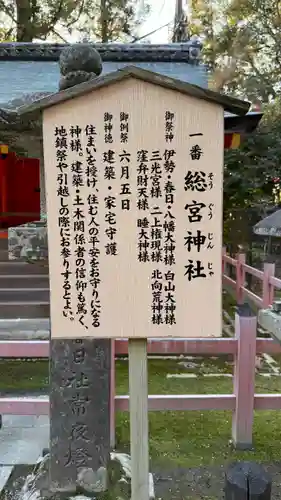 一番 総宮神社
そう ぐう じん じゃ
御祭神
伊勢・春日・八幡大神様 白山大神様
三光宮様 二上権現様 北向荒神様
窪弁財天様 睡大神様
御例祭 六月五日
御神徳 建築・家宅守護
住まいを授け、住む人の平安をお守りになる
神様。建築・土木関係者の信仰も篤く、
地鎮祭や引越しの際にお参りするとよい。
社常夜燈